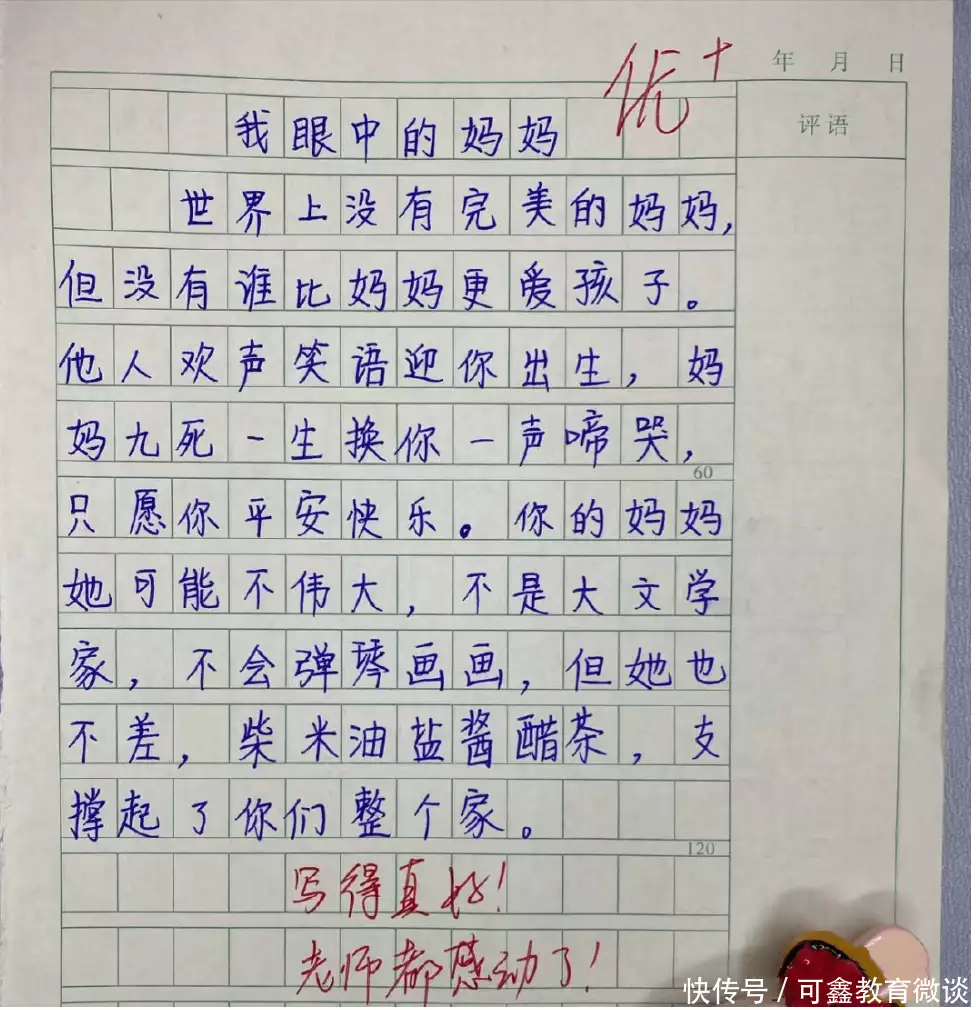 优+
年 月 日
评语
我眼中的妈妈
世界上没有完美的妈妈,
但没有谁比妈妈更爱孩子。
他人欢声笑语迎你出生,妈
妈九死一生换你一声啼哭,
60
只愿你平安快乐。你的妈妈
她可能不伟大,不是大文学
家,不会弹琴画画,但她也
不差,柴米油盐酱醋茶,支
撑起了你们整个家。
120
写得真好!
老师都感动了!
快传号/可鑫教育微谈